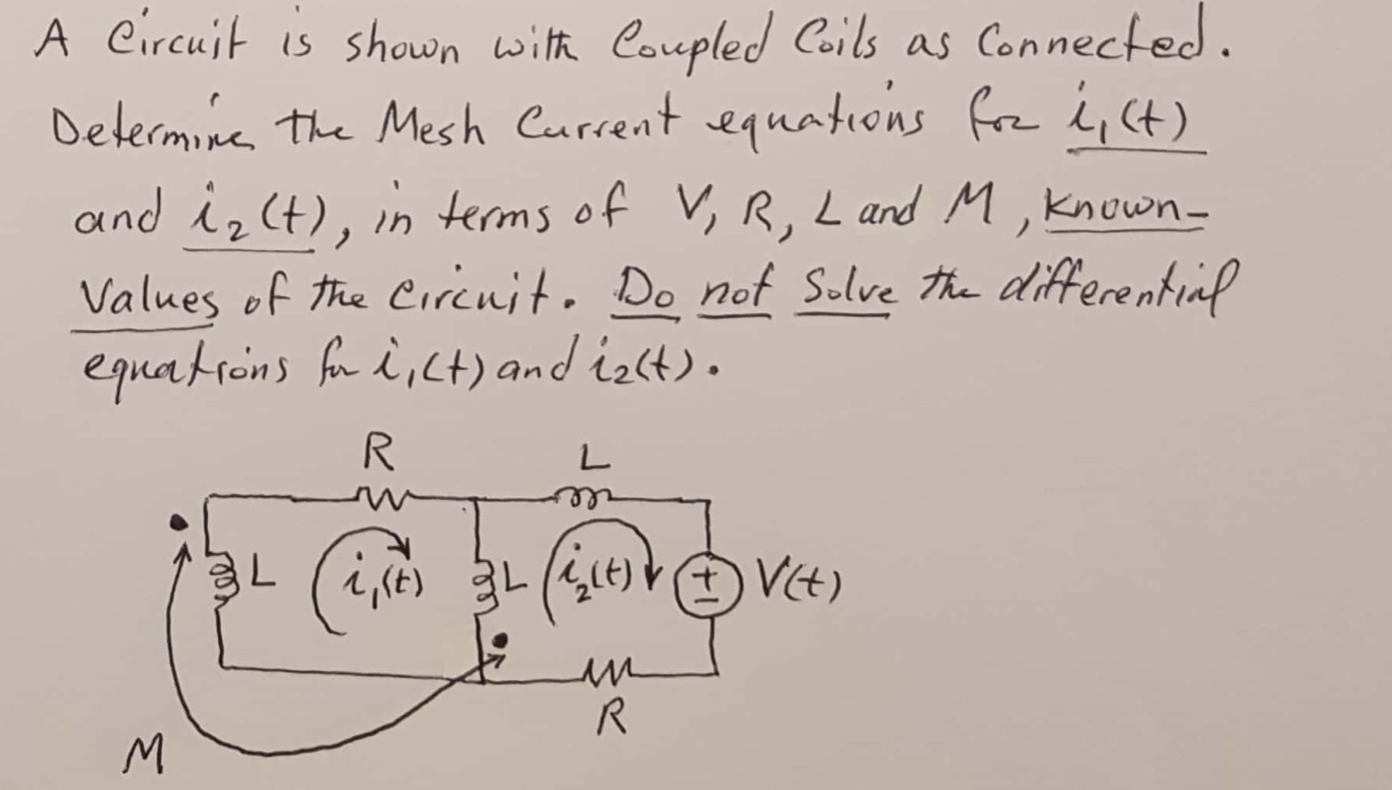 A Circuit is shown with Coupled Coils as Connected.
Determine the Mesh Current equations for i₁(t)
and i₂(t), in terms of V, R, L and M, known-
Values of the circuit. Do not Solve the differential
equations for i₁(t) and i₂(t).
R L
L i₁(t) L i₂(t) + − V(t)
R
M